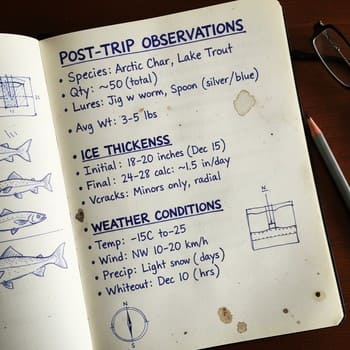 POST-TRIP OBSERVATIONS
• Species: Arctic Char, Lake Trout
• Qty: ~50 (total)
• Lures: Jig w worm, Spoon (silver/blue)
• Avg Wt: 3-5 lbs
• ICE THICKENSS
• Initial: 18-20 inches (Dec 15)
• Final: 24-28 calc: ~1.5 in/day
• Vcracks: Minors only, radial
• WEATHER CONDITIONS
• Temp: -15C to -25
• Wind: NW 10-20 km/h
• Precip: Light snow (days)
• Whiteout: Dec 10 (hrs)
N
N
S